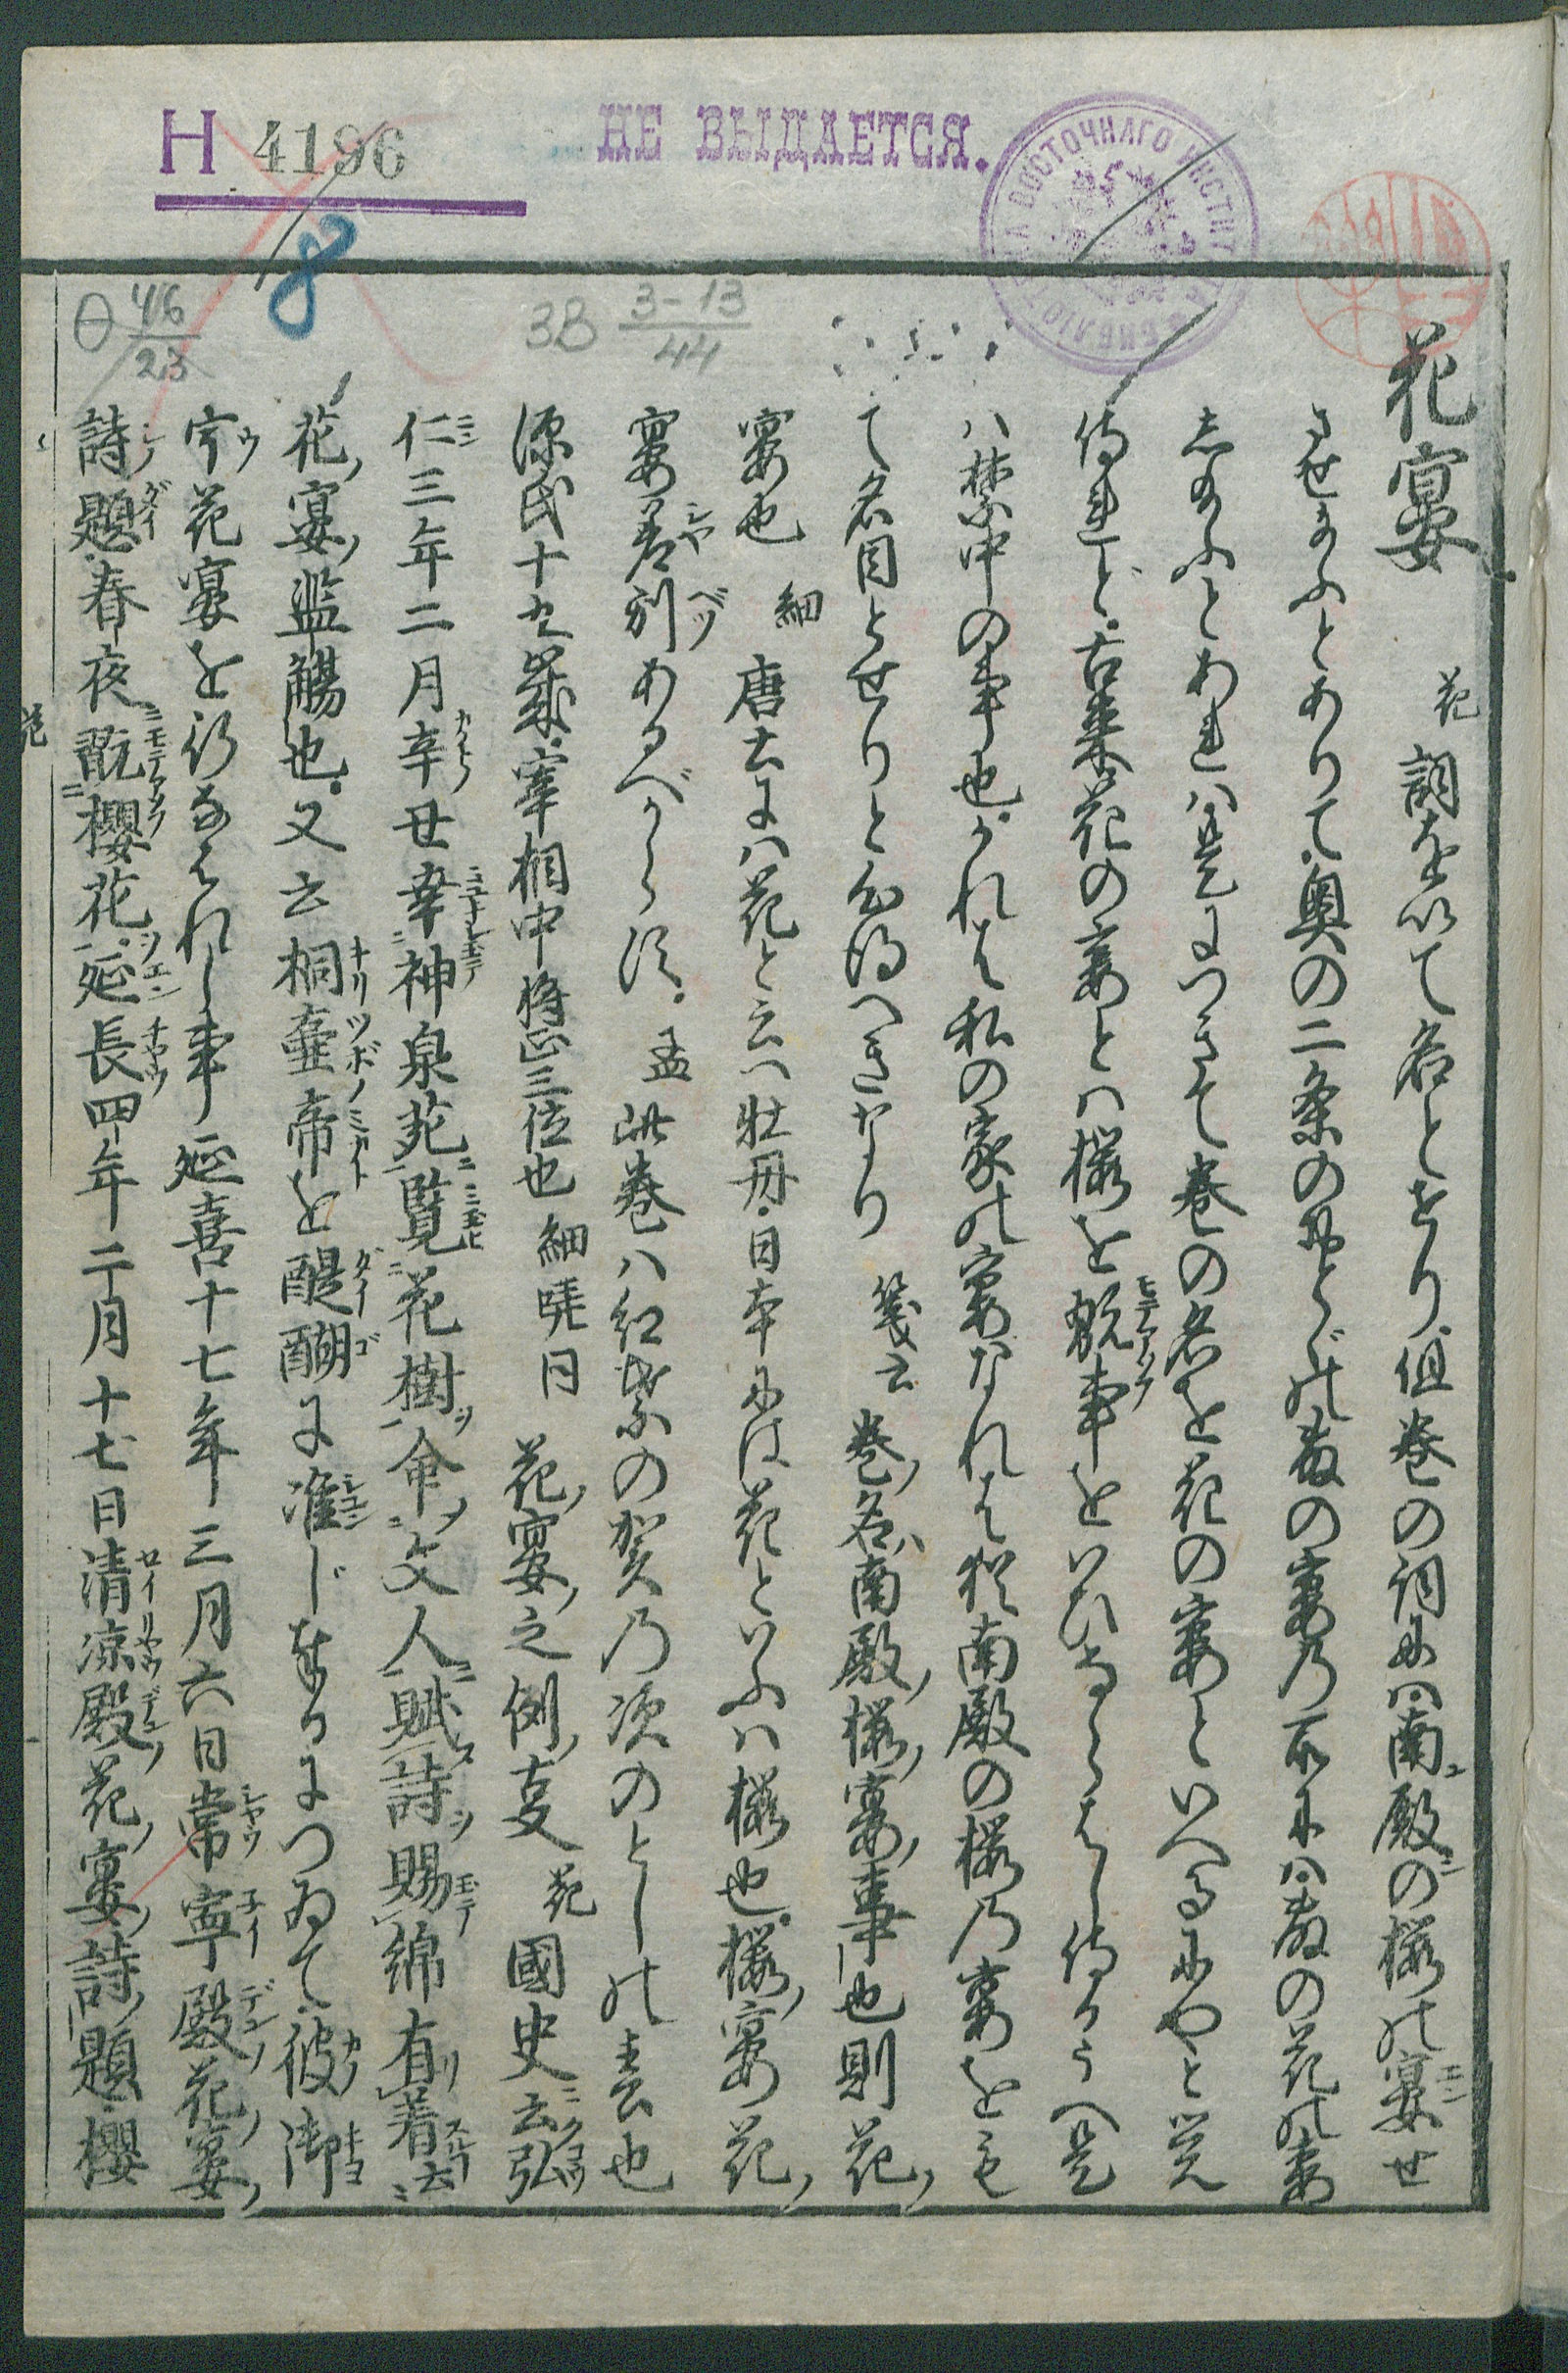 H 4196
НЕ ВЫДАЕТСЯ.
ВОСТОЧНАГО ИНСТИТ
8
Θ 46/23
3В 3-13/44
花宴 花 詞を以て名とせり.但巻の詞には南殿の櫻の宴せ
させ給ふとありて.奥の二条の おとゞの藤の宴乃所には藤の花の宴
し給ふとあれは是につきて巻の名を花の宴といへるにやと覚
侍れど.古来花の宴とは櫻を翫事をいひならはし侍るうへ是
は禁中の事也.かれは私の家の宴なれは猶南殿の櫻乃宴をも
て名目とせりと心得へきなり 箋云 巻ノ名ハ南殿ノ櫻ノ宴ノ事也則花ノ
宴也 細 唐土には花と云へ牡丹.日本には花といふは櫻也.櫻ノ宴花ノ
宴差別あるべからず. 孟 此巻ハ紅葉の賀乃次のとしの春也
源氏十九歳.宰相中将正三位也 細 暁同 花ノ宴ノ之例ノ支 花 國史云弘
仁三年二月辛丑幸神泉苑覧花樹命文人賦詩賜綿有着云
花ノ宴ノ濫觴也.又云桐壷帝を醍醐に准じ奉るにつゐて.彼御
宇花宴を行なはれし事 延喜十七年三月六日常寧殿花ノ宴ノ
詩ノ題.春夜翫櫻花.延長四年二月十七日清凉殿花ノ宴ノ詩ノ題.櫻
花